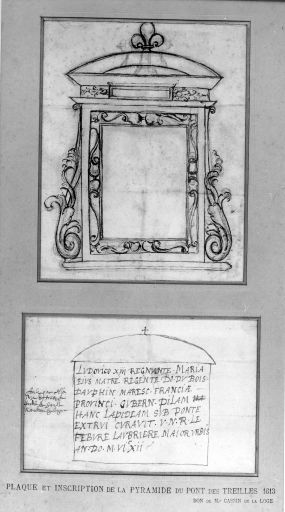 LVDOVICO XIII REGNANTE. MARIA
EIVS MATRE REGENTE DO. DV BOIS
DAVPHIN MARESC. FRANCIÆ
PROVINCI. GVBERN. PILAM
HANC LAPIDEAM SVB PONTE
EXTRVI CVRAVIT. V. N. R. LE
FEBVRE LAVBRIERE MAIOR VRBIS
AN. DO. M. VI. XII
PLAQUE ET INSCRIPTION DE LA PYRAMIDE DU PONT DES TREILLES 1613
DON DE Mr CASSIN DE LA LOGE